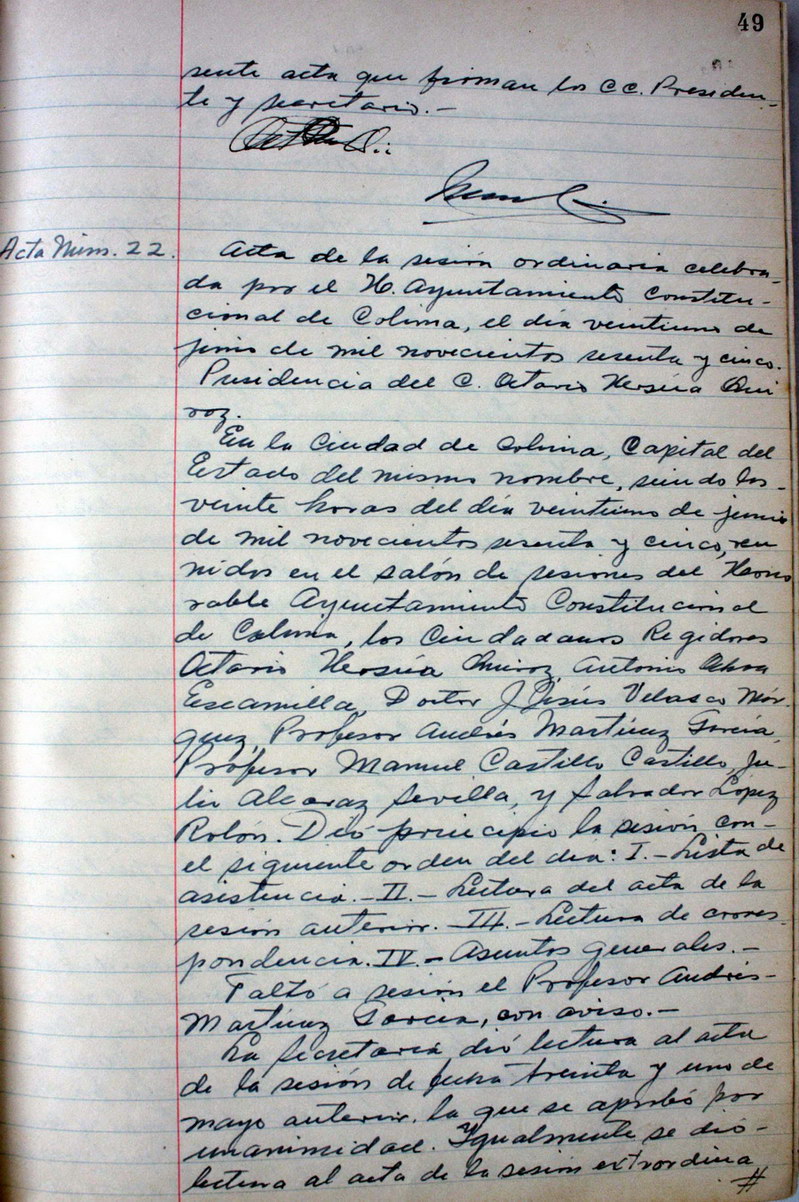 49
sente acta que firman los CC. Presiden-
te y secretario.-
Acta Núm. 22.
Acta de la sesión ordinaria celebra-
da por el H. Ayuntamiento Constitu-
cional de Colima, el día veintiuno de
junio de mil novecientos sesenta y cinco.
Presidencia del C. Octavio Hersúa Qui
roz.
En la Ciudad de Colima, Capital del
Estado del mismo nombre, siendo las-
veinte horas del día veintiuno de junio
de mil novecientos sesenta y cinco, reu
nidos en el salón de sesiones del Hono
rable Ayuntamiento Constitucional
de Colima, los Ciudadanos Regidores
Octavio Hersúa Quiroz, Antonio Ochoa
Escamilla, Doctor J. Jesús Velasco Már-
quez, Profesor Andrés Martínez García,
Profesor Manuel Castillo Castillo, Ju-
lio Alcaraz Sevilla, y Salvador López
Rolón. Dió principio la sesión con-
el siguiente orden del día: I.- Lista de
asistencia.- II.- Lectura del acta de la
sesión anterior.- III.- Lectura de corres-
pondencia. IV.- Asuntos generales.-
Faltó a sesión el Profesor Andrés-
Martínez García, con aviso.-
La Secretaría dió lectura al acta
de la sesión de fecha treinta y uno de
mayo anterior, la que se aprobó por
unanimidad. Igualmente se dió-
lectura al acta de la sesión extrordina
#